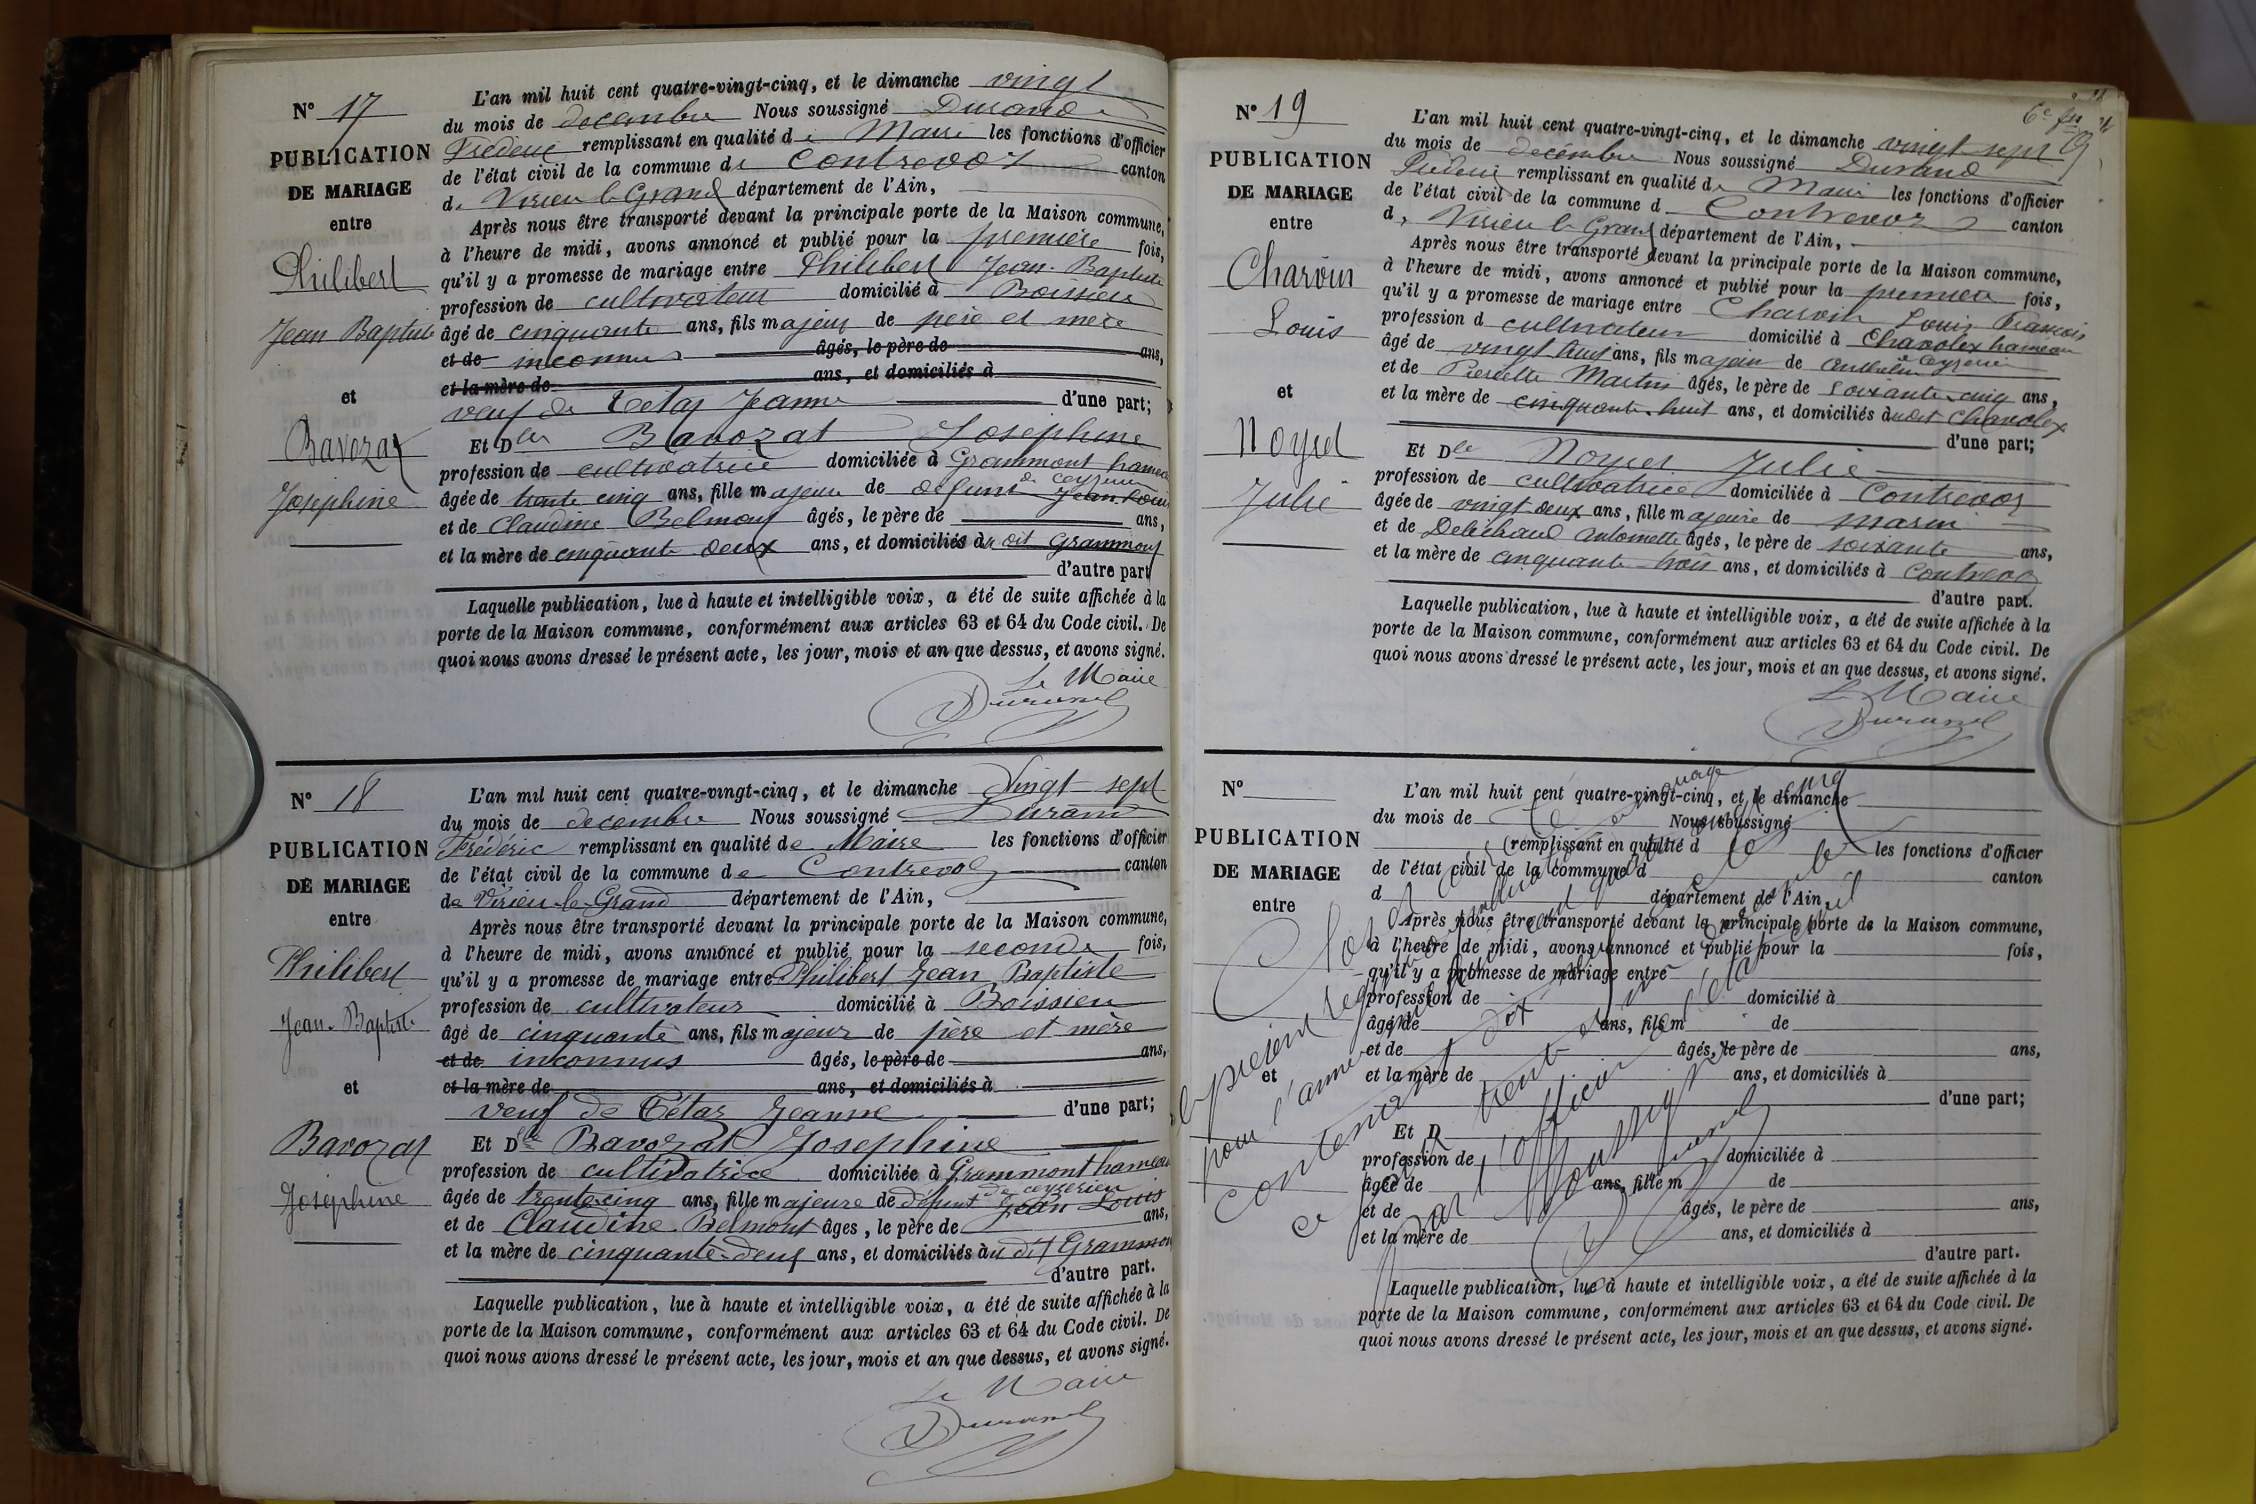 N° 17
PUBLICATION
DE MARIAGE
entre
Philibert
Jean Baptiste
et
Bavozat
Joséphine
L'an mil huit cent quatre-vingt-cinq, et le dimanche vingt
du mois de decembre Nous soussigné Durand
Frédéric remplissant en qualité de Maire les fonctions d'officier
de l'état civil de la commune de Contrevoz canton
de Virieu le Grand département de l'Ain,
Après nous être transporté devant la principale porte de la Maison commune,
à l'heure de midi, avons annoncé et publié pour la première fois,
qu'il y a promesse de mariage entre Philibert Jean-Baptiste
profession de cultivateur domicilié à Boissieu
âgé de cinquante ans, fils majeur de père et mère
et de inconnus âgés, le père de ans,
et la mère de ans, et domiciliés à
veuf de Tétaz Jeanne d'une part;
Et Dlle Bavozat Joséphine
profession de cultivatrice domiciliée à Grammont hameau
de Ceyzerieu
âgée de trente cinq ans, fille majeure de défunt Jean Louis
et de Claudine Belmont âgés, le père de ans,
et la mère de cinquante deux ans, et domiciliés à au dit Grammont
d'autre part
Laquelle publication, lue à haute et intelligible voix, a été de suite affichée à la
porte de la Maison commune, conformément aux articles 63 et 64 du Code civil. De
quoi nous avons dressé le présent acte, les jour, mois et an que dessus, et avons signé.
Le Maire
Durand
N° 18
PUBLICATION
DE MARIAGE
entre
Philibert
Jean-Baptiste
et
Bavozat
Joséphine
L'an mil huit cent quatre-vingt-cinq, et le dimanche Vingt-sept
du mois de decembre Nous soussigné Durand
Frédéric remplissant en qualité de Maire les fonctions d'officier
de l'état civil de la commune de Contrevoz canton
de Virieu-le-Grand département de l'Ain,
Après nous être transporté devant la principale porte de la Maison commune,
à l'heure de midi, avons annoncé et publié pour la seconde fois,
qu'il y a promesse de mariage entre Philibert Jean Baptiste
profession de cultivateur domicilié à Boissieu
âgé de cinquante ans, fils majeur de père et mère
et de inconnus âgés, le père de ans,
et la mère de ans, et domiciliés à
veuf de Tétaz Jeanne d'une part;
Et Dlle Bavozat Joséphine
profession de cultivatrice domiciliée à Grammont hameau
de Ceyzerieu
âgée de trente-cinq ans, fille majeure de défunt Jean Louis
et de Claudine Belmont âgés, le père de ans,
et la mère de cinquante-deux ans, et domiciliés à au dit Grammont
d'autre part.
Laquelle publication, lue à haute et intelligible voix, a été de suite affichée à la
porte de la Maison commune, conformément aux articles 63 et 64 du Code civil. De
quoi nous avons dressé le présent acte, les jour, mois et an que dessus, et avons signé.
Le Maire
Durand
N° 19
PUBLICATION
DE MARIAGE
entre
Charvin
Louis
et
Noyel
Julie
L'an mil huit cent quatre-vingt-cinq, et le dimanche vingt sept
du mois de decembre Nous soussigné Durand
Frédéric remplissant en qualité de Maire les fonctions d'officier
de l'état civil de la commune d Contrevoz canton
de Virieu le Grand département de l'Ain,
Après nous être transporté devant la principale porte de la Maison commune,
à l'heure de midi, avons annoncé et publié pour la première fois,
qu'il y a promesse de mariage entre Charvin Louis François
profession d cultivateur domicilié à Chavolex hameau
de Ceyzerieu
âgé de vingt huit ans, fils majeur de Anthelme
et de Pierrette Martin âgés, le père de soixante cinq ans,
et la mère de cinquante huit ans, et domiciliés à audit Chavolex
d'une part;
Et Dlle Noyel Julie
profession de cultivatrice domiciliée à Contrevoz
âgée de vingt deux ans, fille majeure de Marin
et de Antoinette âgés, le père de soixante ans,
et la mère de cinquante trois ans, et domiciliés à Contrevoz
d'autre part.
Laquelle publication, lue à haute et intelligible voix, a été de suite affichée à la
porte de la Maison commune, conformément aux articles 63 et 64 du Code civil. De
quoi nous avons dressé le présent acte, les jour, mois et an que dessus, et avons signé.
Le Maire
Durand
N°
PUBLICATION
DE MARIAGE
entre
et
L'an mil huit cent quatre-vingt-cinq, et le dimanche
du mois de Nous soussigné
remplissant en qualité d les fonctions d'officier
de l'état civil de la commune d canton
d département de l'Ain,
Après nous être transporté devant la principale porte de la Maison commune,
à l'heure de midi, avons annoncé et publié pour la fois,
qu'il y a promesse de mariage entre
profession de domicilié à
âgé de ans, fils m de
et de âgés, le père de ans,
et la mère de ans, et domiciliés à
d'une part;
Et D
profession de domiciliée à
âgée de ans, fille m de
et de âgés, le père de ans,
et la mère de ans, et domiciliés à
d'autre part.
Laquelle publication, lue à haute et intelligible voix, a été de suite affichée à la
porte de la Maison commune, conformément aux articles 63 et 64 du Code civil. De
quoi nous avons dressé le présent acte, les jour, mois et an que dessus, et avons signé.
Clos et
le présent registre
pour l'année
contenant dix
ce trente et un
par l'officier de l'état civil
soussigné
Durand